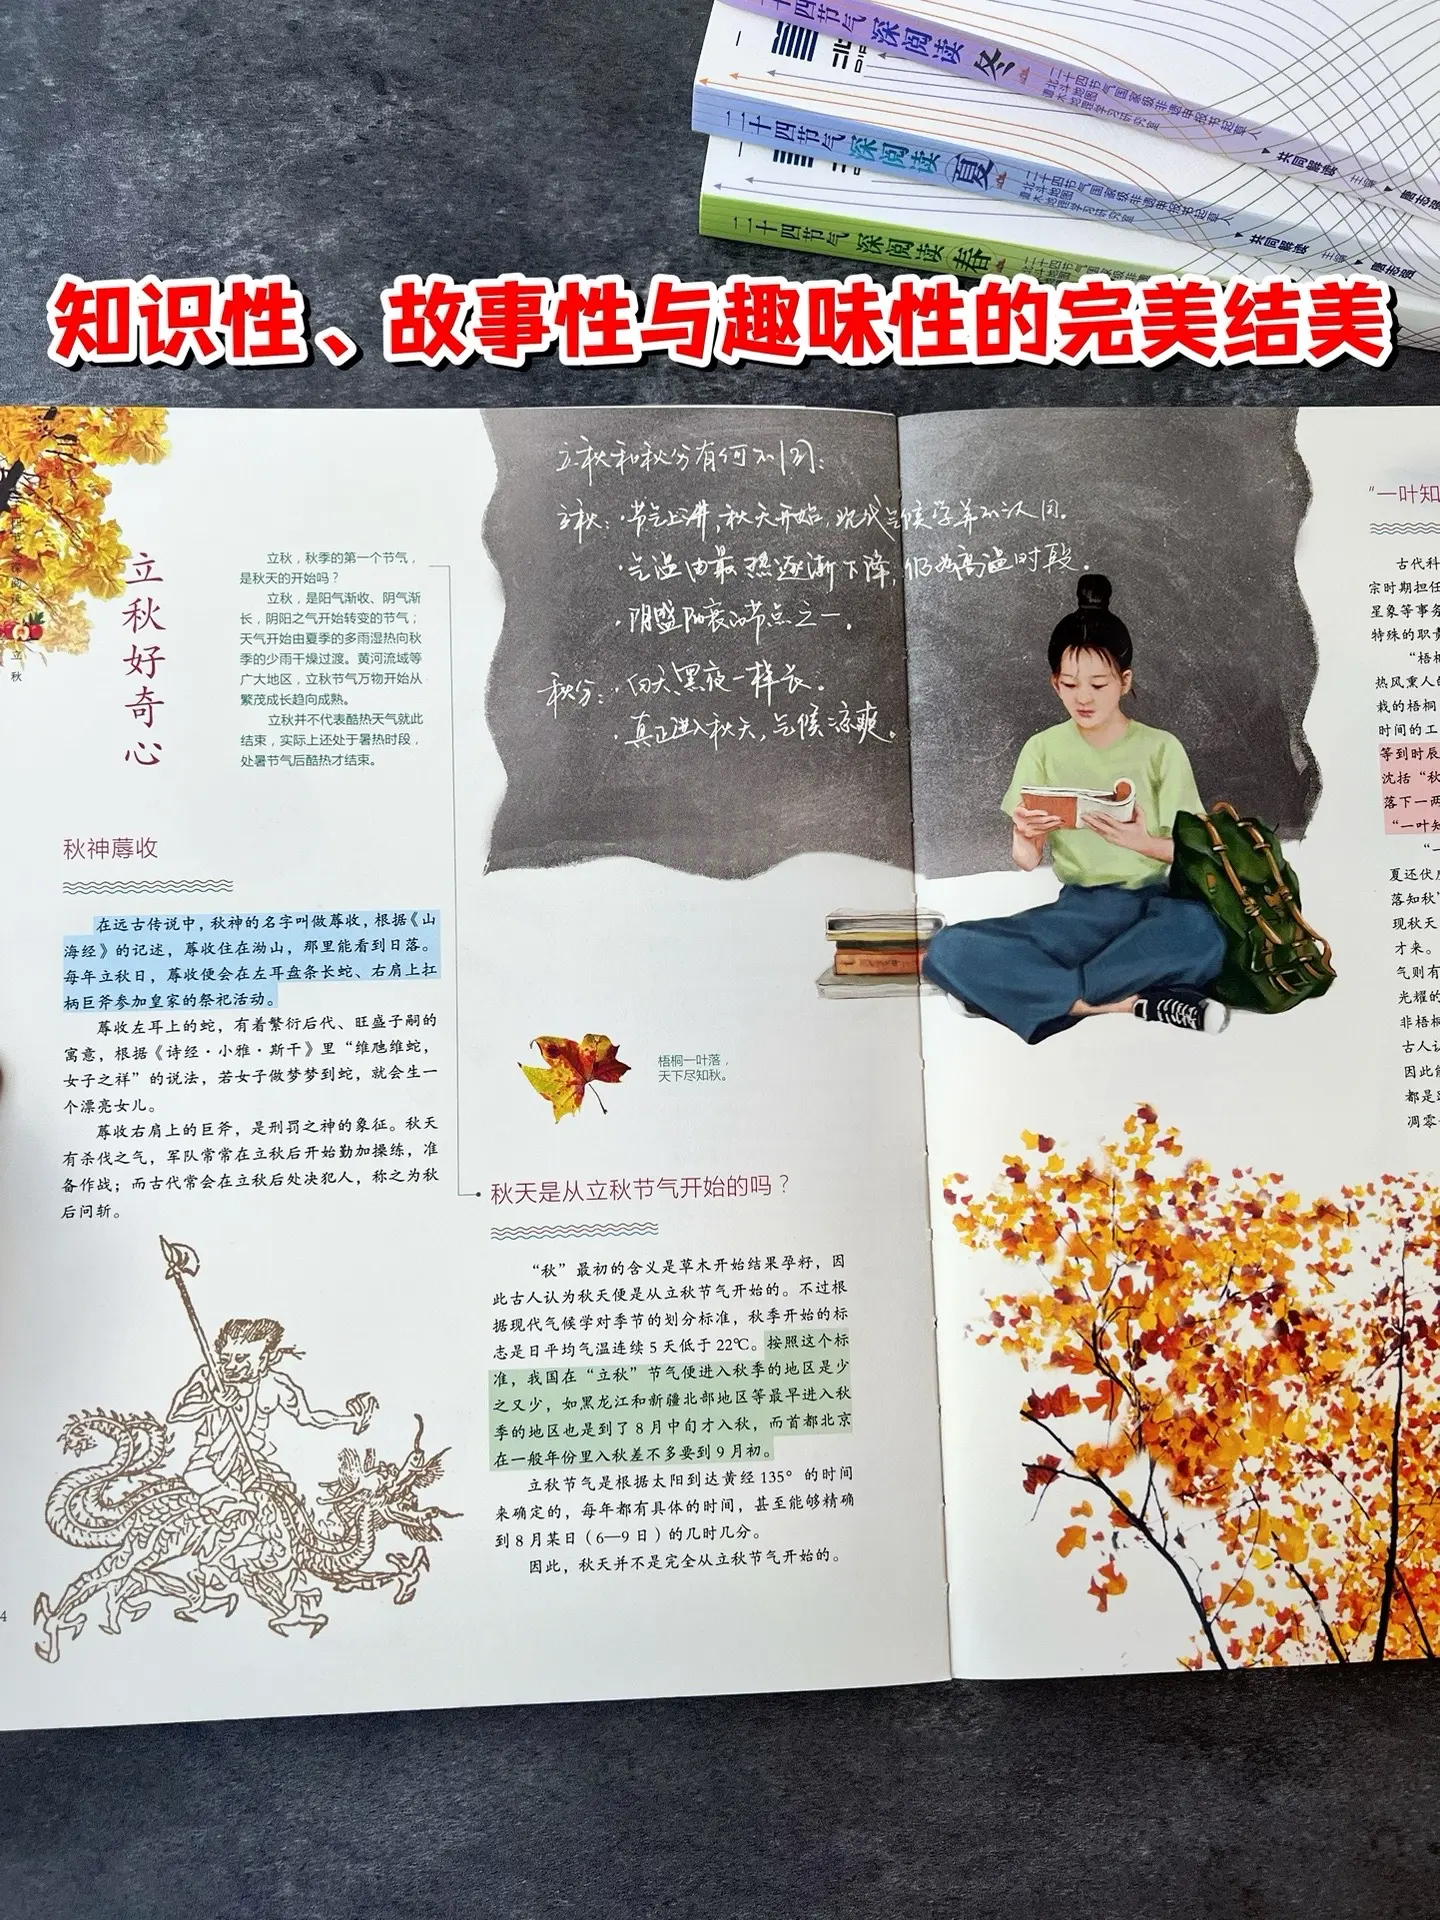 二十四节气 深阅读 冬
二十四节气国家级非遗申报书起草人
北斗地图
共同解读
主编
二十四节气 深阅读 夏
二十四节气国家级非遗申报书起草人
北斗地图
共同解读
主编
二十四节气 深阅读 春
知识性、故事性与趣味性的完美结美
立秋
立秋好奇心
立秋，秋季的第一个节气，
是秋天的开始吗？
立秋，是阳气渐收、阴气渐
长，阴阳之气开始转变的节气；
天气开始由夏季的多雨湿热向秋
季的少雨干燥过渡。黄河流域等
广大地区，立秋节气万物开始从
繁茂成长趋向成熟。
立秋并不代表酷热天气就此
结束，实际上还处于暑热时段，
处暑节气后酷热才结束。
立秋和秋分有何不同：
立秋：·节气上讲，秋天开始，现代气候学并不认同。
·气温由最热逐渐下降，仍为高温时段。
·阴盛阳衰的节点之一。
秋分：·白天黑夜一样长。
·真正进入秋天，气候凉爽。
秋神蓐收
在远古传说中，秋神的名字叫做蓐收，根据《山
海经》的记述，蓐收住在泑山，那里能看到日落。
每年立秋日，蓐收便会在左耳盘条长蛇、右肩上扛
柄巨斧参加皇家的祭祀活动。
蓐收左耳上的蛇，有着繁衍后代、旺盛子嗣的
寓意，根据《诗经·小雅·斯干》里“维虺维蛇，
女子之祥”的说法，若女子做梦梦到蛇，就会生一
个漂亮女儿。
蓐收右肩上的巨斧，是刑罚之神的象征。秋天
有杀伐之气，军队常常在立秋后开始勤加操练，准
备作战；而古代常会在立秋后处决犯人，称之为秋
后问斩。
4
梧桐一叶落，
天下尽知秋。
秋天是从立秋节气开始的吗？
“秋”最初的含义是草木开始结果孕籽，因
此古人认为秋天便是从立秋节气开始的。不过根
据现代气候学对季节的划分标准，秋季开始的标
志是日平均气温连续 5 天低于 22℃。按照这个标
准，我国在“立秋”节气便进入秋季的地区是少
之又少，如黑龙江和新疆北部地区等最早进入秋
季的地区也是到了 8 月中旬才入秋，而首都北京
在一般年份里入秋差不多要到 9 月初。
立秋节气是根据太阳到达黄经 135° 的时间
来确定的，每年都有具体的时间，甚至能够精确
到 8 月某日（6—9 日）的几时几分。
因此，秋天并不是完全从立秋节气开始的。
“一叶知
古代科
宗时期担任
星象等事务
特殊的职责
“梧桐
热风熏人的
栽的梧桐
时间的工
等到时辰
沈括“秋
落下一两
“一叶知
“一
夏还伏
落知秋”
现秋天
才来。
气则有
光耀的
非梧桐
古人认
因此能
都是
凋零